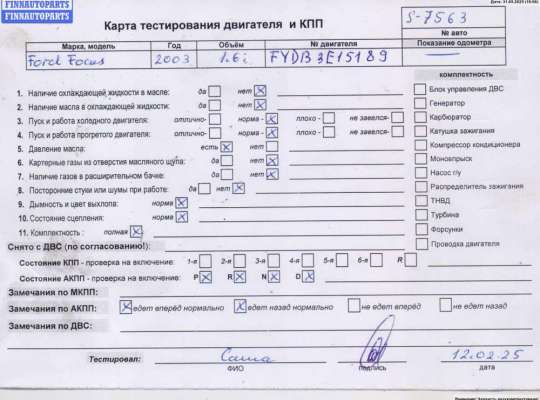 FINNAUTOPARTS
FINNAUTOPARTS
Карта тестирования двигателя и КПП
S-7563
№ авто
Марка, модель Год Объём № двигателя Показание одометра
Ford Focus 2003 1.6i FYDB3E15189
комплектность
1. Наличие охлаждающей жидкости в масле: да нет X Блок управления ДВС
2. Наличие масла в охлаждающей жидкости: да нет X Генератор
3. Пуск и работа холодного двигателя: отлично- норма - X плохо - не завелся- Карбюратор
4. Пуск и работа прогретого двигателя: отлично- норма - X плохо - не завелся- Катушка зажигания
5. Давление масла: есть X нет Компрессор кондиционера
6. Картерные газы из отверстия масляного щупа: да нет X Моновпрыск
7. Наличие газов в расширительном бачке: да нет X Насос г/у
8. Посторонние стуки или шумы при работе: да нет X Распределитель зажигания
9. Дымность и цвет выхлопа: норма X ТНВД
10. Состояние сцепления: норма X Турбина
11. Комплектность : полная X Форсунки
Снято с ДВС (по согласованию!): Проводка двигателя
Состояние КПП - проверка на включение: 1-я 2-я 3-я 4-я 5-я 6-я R
Состояние АКПП - проверка на включение: P X R X N X D X
Замечания по МКПП:
Замечания по АКПП: X едет вперёд нормально X едет назад нормально не едет вперёд не едет назад
Замечания по ДВС:
Тестировал: Саша 12.02.25
ФИО подпись дата